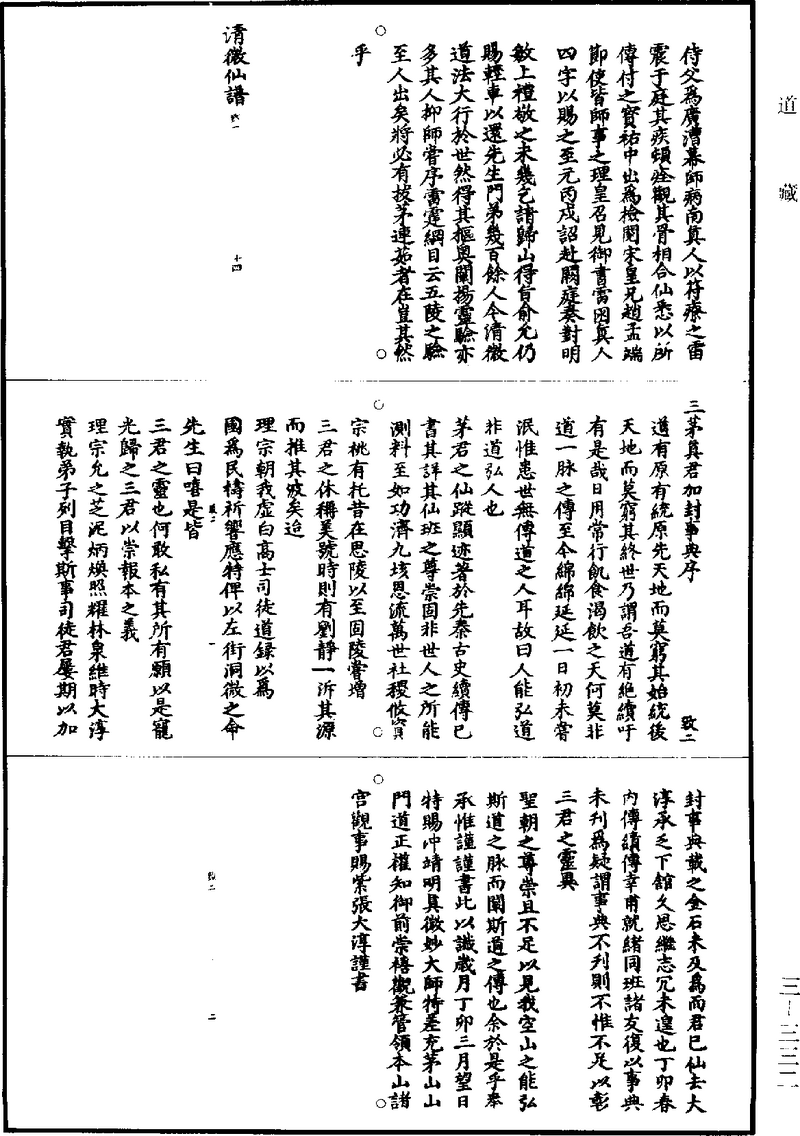 道藏
侍父爲廣漕幕師病南真人以符療之雷
震于庭其疾頓痊觀其骨相合仙悉以所
傳付之寳祐中出爲檢閱宋皇兄趙孟端
節使皆師事之理皇召見御書雷囦真人
四字以賜之至元丙戌詔赴闕庭奏對明
敏上禮敬之未幾乞請歸山得旨俞允仍
賜輕車以還先生門弟幾百餘人今清微
道法大行於世然得其樞奥闡揚靈驗亦
多其人抑師嘗序雷霆綱目云五陵之驗
至人出矣將必有拔茅連茹者在豈其然
乎
清微仙譜
十四
三茅真君加封事典序 致二
道有原有統原先天地而莫窮其始統後
天地而莫窮其終世乃謂吾道有絶續吁
有是哉日用常行飢食渴飲之天何莫非
道一脉之傳至今綿綿延延一日初未嘗
泯惟患世無傳道之人耳故曰人能弘道
非道弘人也
茅君之仙蹤顯迹著於先秦古史續傳已
書其詳其仙班之尊崇固非世人之所能
測料至如功濟九垓恩流萬世社稷攸賓
宗祧有托昔在思陵以至固陵嘗增
三君之休稱美號時則有劉靜一泝其源
而推其波矣迨
理宗朝我虚白高士司徒道録以爲
國爲民禱祈響應特俾以左街洞微之命
先生曰嘻是皆
三君之靈也何敢私有其所有願以是寵
光歸之三君以崇報本之義
理宗允之芝泥炳煥照耀林泉維時大淳
實執弟子列目擊斯事司徒君屢期以加
一
封事典載之金石未及爲而君已仙去大
淳承乏下館久思繼志冗未遑也丁卯春
内傳續傳幸甫就緒同班諸友復以事典
未刊爲疑謂事典不刊則不惟不足以彰
三君之靈異
聖朝之尊崇且不足以見我空山之能弘
斯道之脉而闡斯道之傳也余於是乎奉
承惟謹謹書此以識歲月丁卯三月望日
特賜冲靖明真微妙大師特差充茅山山
門道正權知御前崇禧觀兼管領本山諸
宫觀事賜紫張大淳謹書
二
三—三三二